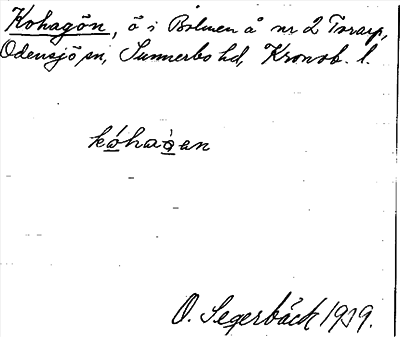 Kohagön, ö i Bolmen å nr 2 Torarp,
Odensjö sn, Sunnerbo hd, Kronob. l.
kóhaàan
O. Segerbäck 1919.